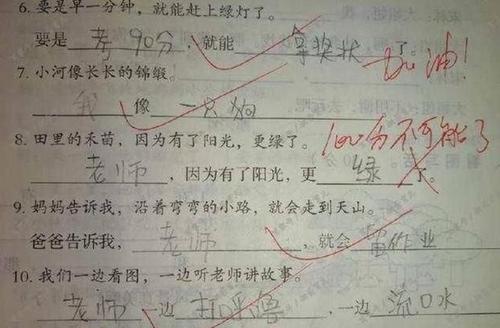 6. 要是早一分钟，就能赶上绿灯了。
要是 考90分，就能 拿奖状 了。加油！
7. 小河像长长的锦缎。
我 像 一只狗
8. 田里的禾苗，因为有了阳光，更绿了。100分不可能了
老师，因为有了阳光，更 绿 了。
9. 妈妈告诉我，沿着弯弯的小路，就会走到天山。
爸爸告诉我，老师，就会 留作业
10. 我们一边看图，一边听老师讲故事。
老师 一边 打呼噜，一边 流口水